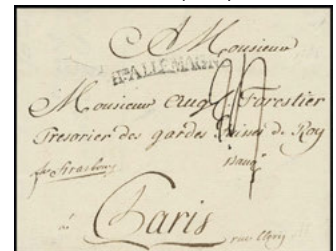 A Monsieur
Hte ALLEMAGNE
Monsieur Augt Forestier
Tresorier des gardes Suisses du Roy
fco Strasbourg
à Paris
rue Clery